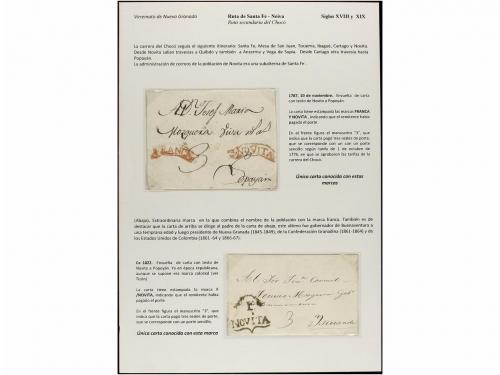 Virreinato de Nueva Granada
Ruta de Santa Fé - Neiva
Siglos XVIII y XIX
Ruta secundaria del Chocó
La carrera del Chocó seguía el siguiente itinerario: Santa Fe, Mesa de San Juan, Tocaima, Ibagué, Cartago y Novita.
Desde Novita salían travesías a Quibdo y también a Anserma y Vega de Supia. Desde Cartago otra travesía hasta
Popayán.
La administración de correos de la población de Novita era una subalterna de Santa Fe.
1787, 20 de noviembre. Envuelta de carta
con texto de Novita a Popayán.
La carta tiene estampadas las marcas FRANCA
Y NOVITA, indicando que el remitente había
pagado el porte.
En el frente figura el manuscrito "3", que
indica que la carta pagó tres reales de porte,
que se corresponde con un con un porte
sencillo según tarifa de 1 de octubre de
1776, en que se aprobaron las tarifas de la
carrera del Chocó.
Única carta conocida con estas
marcas
FRANCA
NOVITA
3
Popayan
(Abajo). Extraordinaria marca en la que combina el nombre de la población con la marca franca. También es de
destacar que la carta de arriba se dirige al padre de la carta de abajo, este último fue gobernador de Buenaventura a
una temprana edad y luego presidente de Nueva Granada (1845-1849), de la Confederación Granadina (1861-1864) y de
los Estados Unidos de Colombia (1861-64 y 1866-67).
Ca 1822. Envuelta de carta con texto de
Novita a Popayán. Ya en época republicana,
aunque se supone era marca colonial (ver
Tizón)
La carta tiene estampada la marca F
/NOVITA, indicando que el remitente había
pagado el porte.
En el frente figura el manuscrito "3", que
indica que la carta pagó tres reales de porte,
que se corresponde con un porte sencillo
Única carta conocida con esta marca
F
NOVITA
3